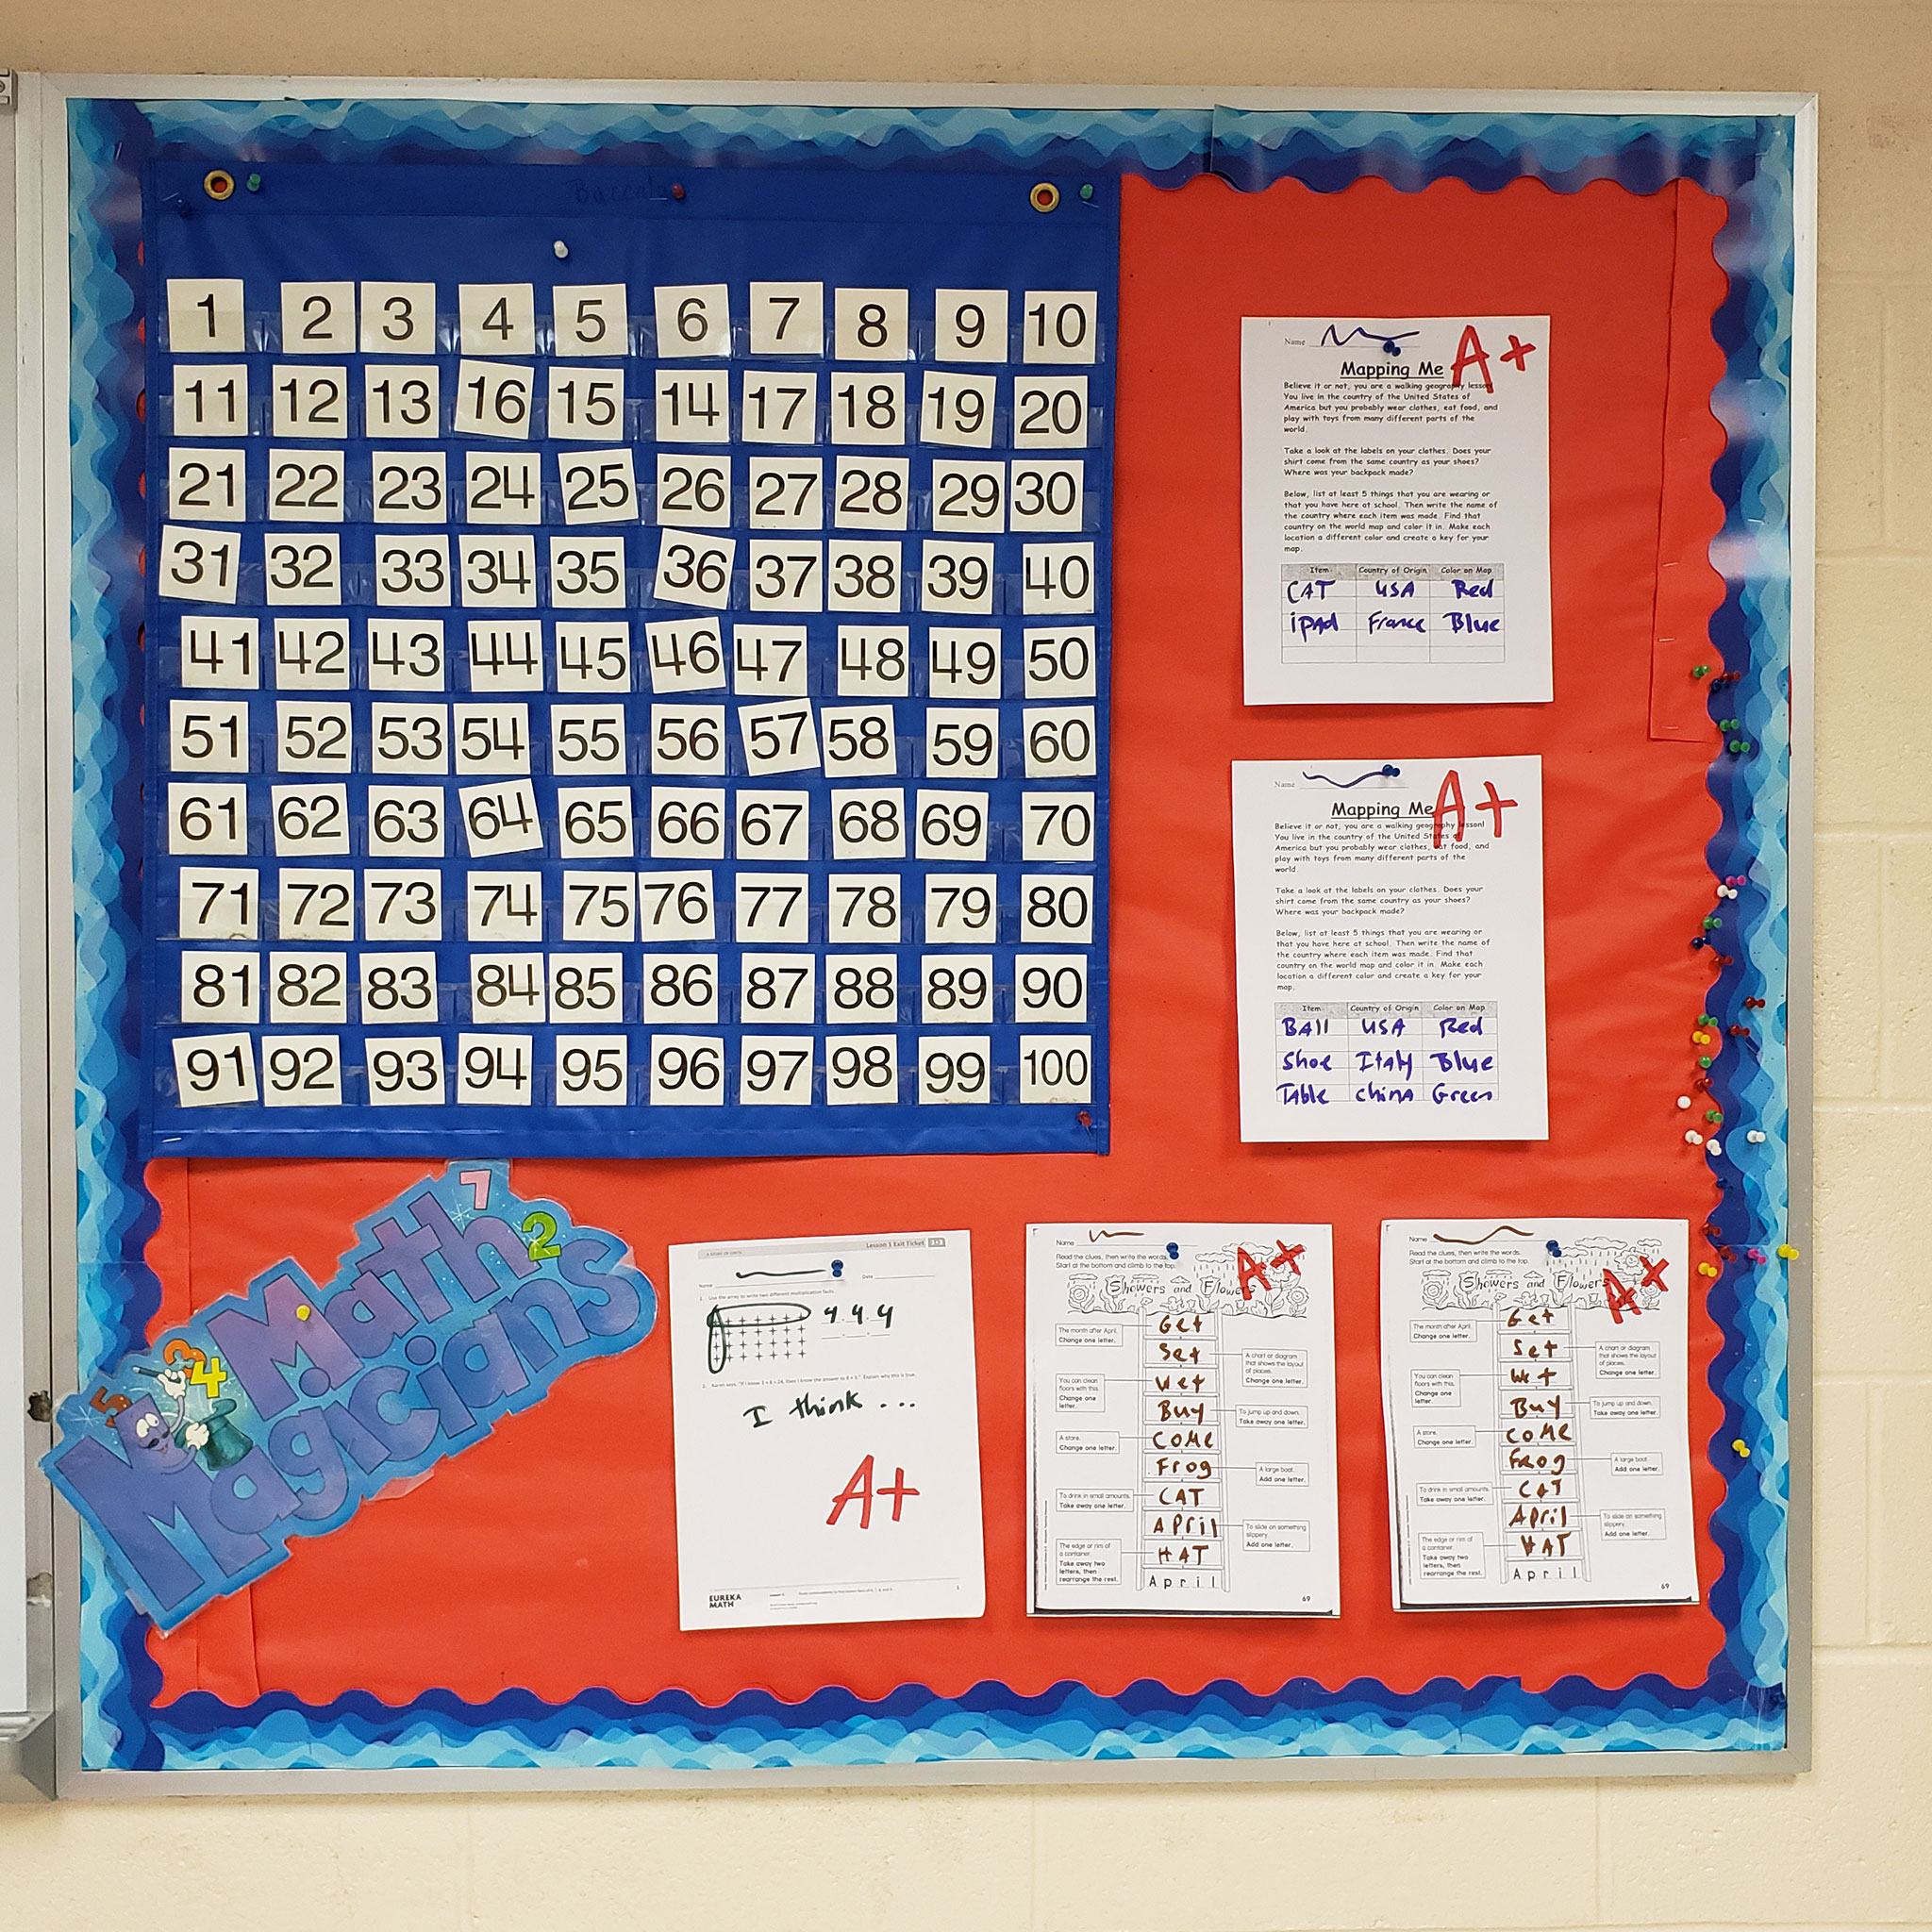 Buccola
1 2 3 4 5 6 7 8 9 10
11 12 13 16 15 14 17 18 19 20
21 22 23 24 25 26 27 28 29 30
31 32 33 34 35 36 37 38 39 40
41 42 43 44 45 46 47 48 49 50
51 52 53 54 55 56 57 58 59 60
61 62 63 64 65 66 67 68 69 70
71 72 73 74 75 76 77 78 79 80
81 82 83 84 85 86 87 88 89 90
91 92 93 94 95 96 97 98 99 100
Name
A+
Mapping Me
Believe it or not, you are a walking geography lesson!
You live in the country of the United States of
America but you probably wear clothes, eat food, and
play with toys from many different parts of the
world.
Take a look at the labels on your clothes. Does your
shirt come from the same country as your shoes?
Where was your backpack made?
Below, list at least 5 things that you are wearing or
that you have here at school. Then write the name of
the country where each item was made. Find that
country on the world map and color it in. Make each
location a different color and create a key for your
map.
Item Country of Origin Color on Map
CAT USA Red
ipAd France Blue
Name
A+
Mapping Me
Believe it or not, you are a walking geography lesson!
You live in the country of the United States of
America but you probably wear clothes, eat food, and
play with toys from many different parts of the
world.
Take a look at the labels on your clothes. Does your
shirt come from the same country as your shoes?
Where was your backpack made?
Below, list at least 5 things that you are wearing or
that you have here at school. Then write the name of
the country where each item was made. Find that
country on the world map and color it in. Make each
location a different color and create a key for your
map.
Item Country of Origin Color on Map
BAll USA Red
Shoe ItAly Blue
TAble chinA Green
7
2
3
4
5
Math
Magicians
A STORY OF UNITS
Lesson 5 Exit Ticket 3•3
Name Date
1. Use the array to write two different multiplication facts.
4 4 4
I think ...
A+
EUREKA
MATH
1
Name
A+
Read the clues, then write the words.
Start at the bottom and climb to the top.
Showers and Flowers
Get
The month after April.
Change one letter.
Set
A chart or diagram
that shows the layout
of places.
Change one letter.
Wet
You can clean
floors with this.
Change one
letter.
Buy
To jump up and down.
Take away one letter.
COME
A store.
Change one letter.
Frog
A large boat.
Add one letter.
CAT
To drink in small amounts.
Take away one letter.
April
To slide on something
slippery.
Add one letter.
HAT
The edge or rim of
a container.
Take away two
letters, then
rearrange the rest.
April
69
Name
A+
Read the clues, then write the words.
Start at the bottom and climb to the top.
Showers and Flowers
Get
The month after April.
Change one letter.
Set
A chart or diagram
that shows the layout
of places.
Change one letter.
Wet
You can clean
floors with this.
Change one
letter.
Buy
To jump up and down.
Take away one letter.
COME
A store.
Change one letter.
Frog
A large boat.
Add one letter.
CAT
To drink in small amounts.
Take away one letter.
April
To slide on something
slippery.
Add one letter.
HAT
The edge or rim of
a container.
Take away two
letters, then
rearrange the rest.
April
69